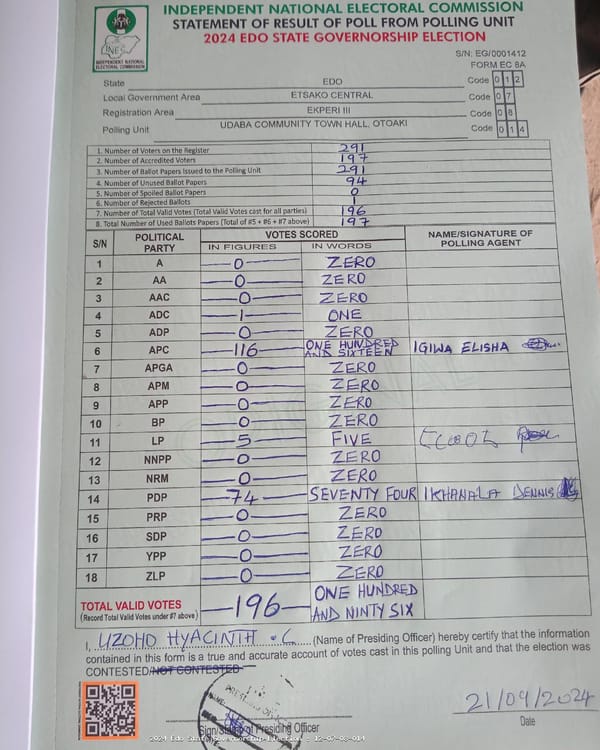 INDEPENDENT NATIONAL ELECTORAL COMMISSION
STATEMENT OF RESULT OF POLL FROM POLLING UNIT
2024 EDO STATE GOVERNORSHIP ELECTION
INEC
INDEPENDENT NATIONAL ELECTORAL COMMISSION
S/N: EG/0001412
FORM EC 8A
State EDO Code 0 1 2
Local Government Area ETSAKO CENTRAL Code 0 7
Registration Area EKPERI III Code 0 8
Polling Unit UDABA COMMUNITY TOWN HALL, OTOAKI Code 0 1 4
1. Number of Voters on the Register 291
2. Number of Accredited Voters 197
3. Number of Ballot Papers Issued to the Polling Unit 291
4. Number of Unused Ballot Papers 94
5. Number of Spoiled Ballot Papers 0
6. Number of Rejected Ballots 1
7. Number of Total Valid Votes (Total Valid Votes cast for all parties) 196
8. Total Number of Used Ballots Papers (Total of #5 + #6 + #7 above) 197
S/N POLITICAL PARTY VOTES SCORED NAME/SIGNATURE OF POLLING AGENT
IN FIGURES IN WORDS
1 A 0 ZERO
2 AA 0 ZERO
3 AAC 0 ZERO
4 ADC 1 ONE
5 ADP 0 ZERO
6 APC 116 ONE HUNDRED AND SIXTEEN IGIWA ELISHA
7 APGA 0 ZERO
8 APM 0 ZERO
9 APP 0 ZERO
10 BP 0 ZERO
11 LP 5 FIVE
12 NNPP 0 ZERO
13 NRM 0 ZERO
14 PDP 74 SEVENTY FOUR IKHANALA DENNIS
15 PRP 0 ZERO
16 SDP 0 ZERO
17 YPP 0 ZERO
18 ZLP 0 ZERO
TOTAL VALID VOTES 196 ONE HUNDRED AND NINTY SIX
(Record Total Valid Votes under #7 above)
I, UZOHO HYACINTH .C (Name of Presiding Officer) hereby certify that the information
contained in this form is a true and accurate account of votes cast in this polling Unit and that the election was
CONTESTED/NOT CONTESTED
21/09/2024
Presiding Officer
Date